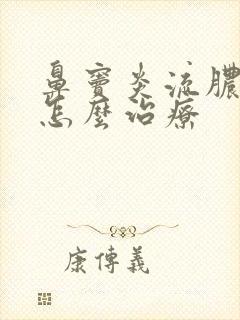 鼻竇炎流膿
怎麼治療
康傳義